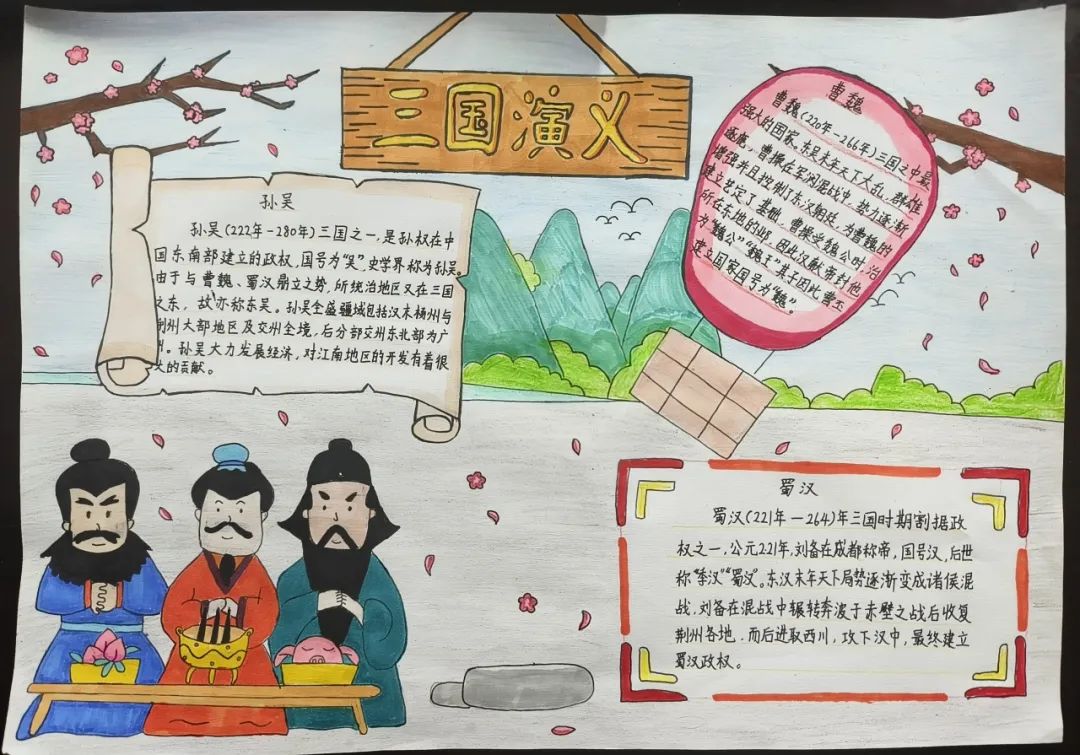 三国演义
孙吴
孙吴(222年-280年)三国之一,是孙权在中
国东南部建立的政权,国号为“吴”史学界称为孙吴。
由于与曹魏、蜀汉鼎立之势,所统治地区又在三国
之东,故亦称东吴。孙吴全盛疆域包括汉末杨州与
荆州大部地区及交州全境,后分部交州东北部为广
州。孙吴大力发展经济,对江南地区的开发有着很
大的贡献。
曹魏
曹魏(220年-266年)三国之中最
强大的国家,东吴末年天下大乱,群雄
逐鹿,曹操在军阀混战中,势力逐渐
增强并且控制了东汉朝廷,为曹魏的
建立艺定了基础。曹操受魏公时,治
所在东地的邺,因此汉献帝封他
为“魏公”“魏王”其子因此,曹丕
建立国家国号为“魏”。
蜀汉
蜀汉(221年-264)年三国时期割据政
权之一,公元221年,刘备在成都称帝,国号汉,后世
称“季汉”“蜀汉”。东汉末年天下局势逐渐变成诸侯混
战,刘备在混战中辗转奔波于赤壁之战后收复
荆州各地,而后进取西川,攻下汉中,最终建立
蜀汉政权。